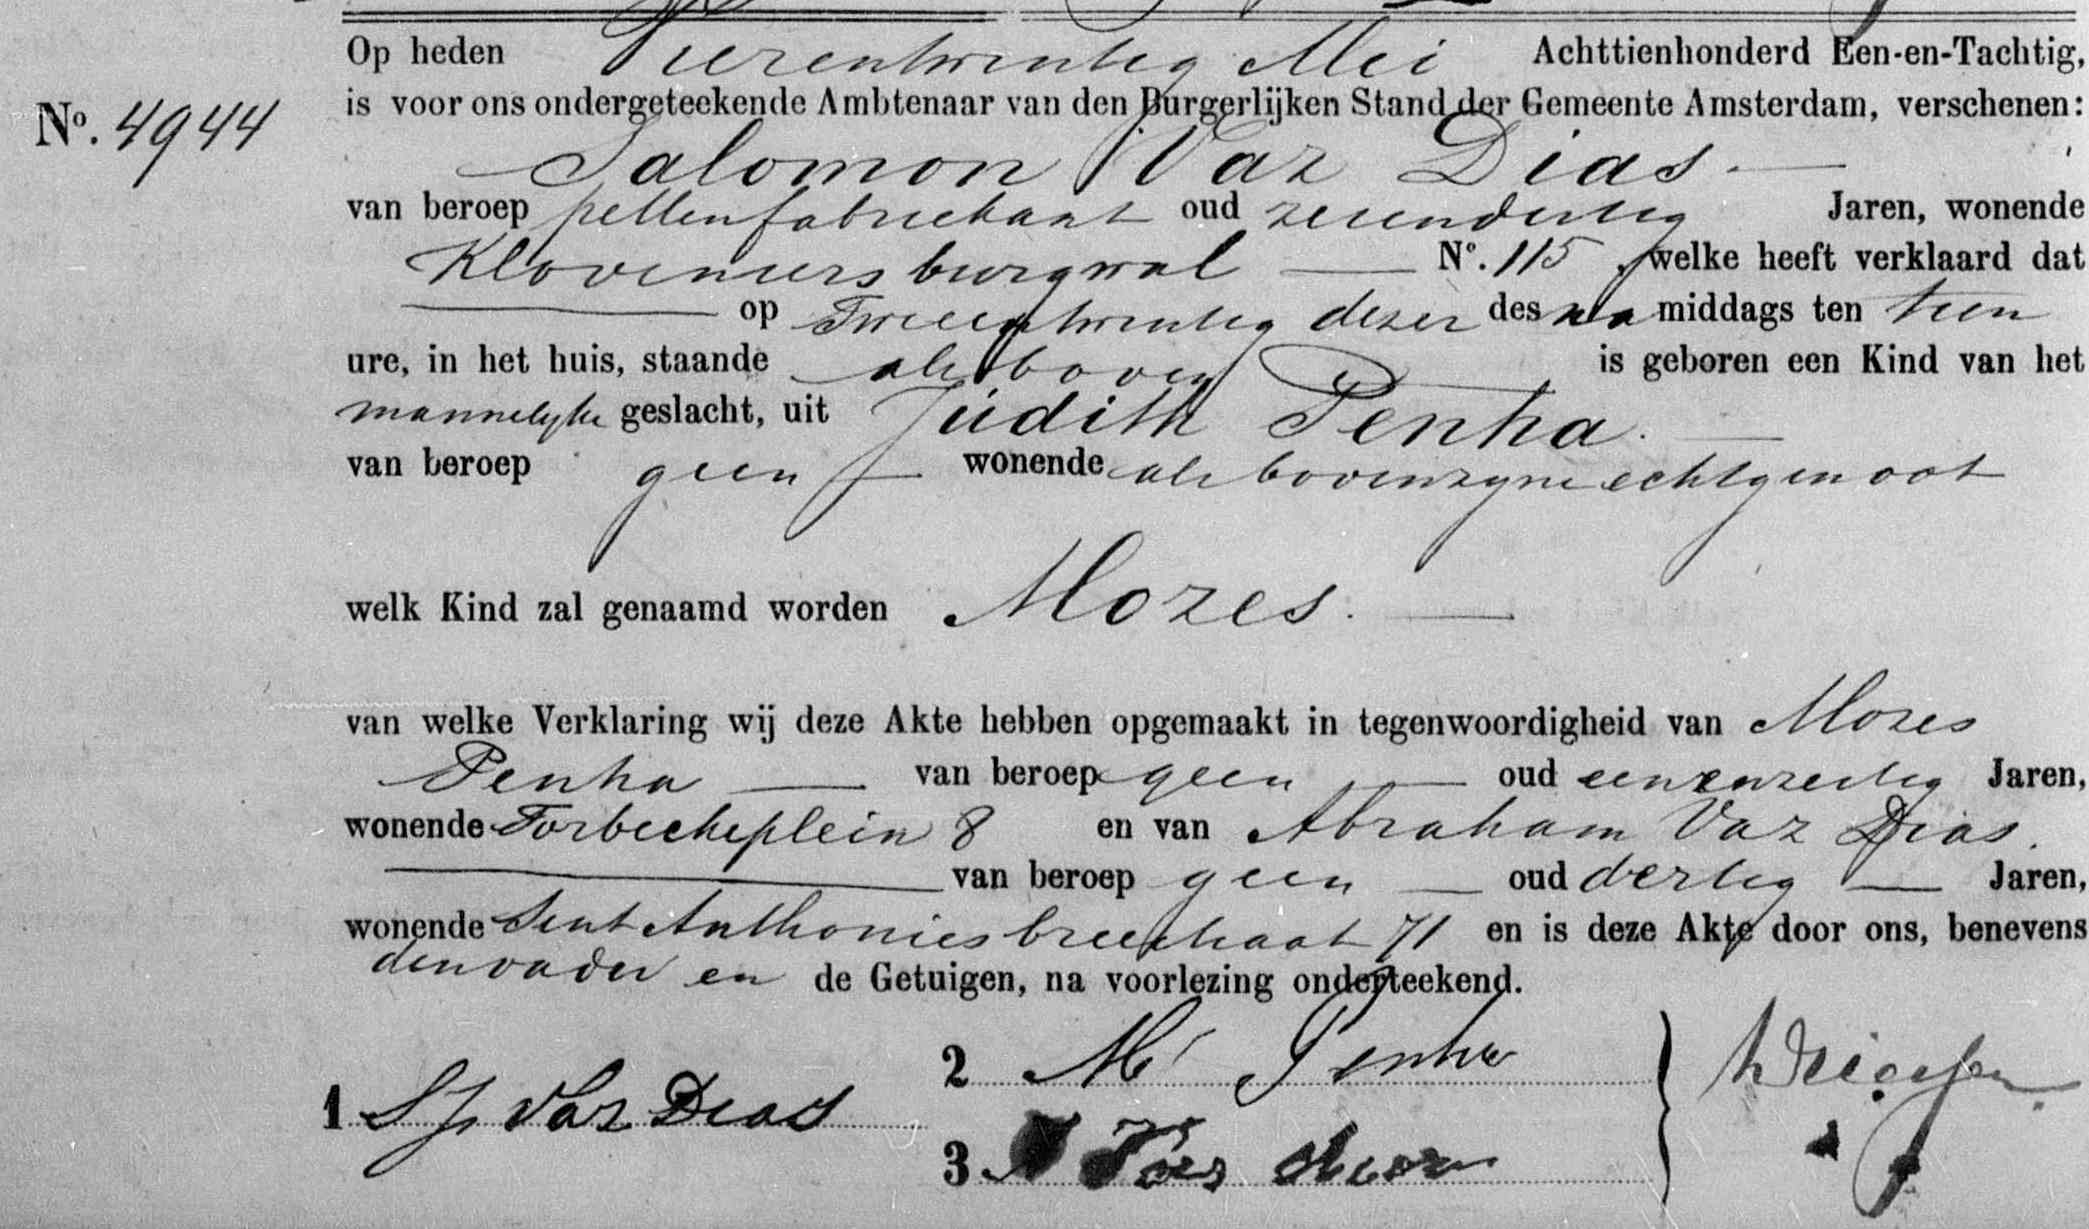 Op heden Vierentwintig Mei Achttienhonderd Een-en-Tachtig,
is voor ons ondergeteekende Ambtenaar van den Burgerlijken Stand der Gemeente Amsterdam, verschenen:
No. 4944
Salomon Vaz Dias
van beroep pettenfabriekant oud zevendertig Jaren, wonende
Kloveniersburgwal No. 115, welke heeft verklaard dat
op Tweeentwintig dezer des na middags ten tien
ure, in het huis, staande als boven is geboren een Kind van het
mannelyke geslacht, uit Judith Penha.
van beroep geen wonende als boven zyne echtgenoot
welk Kind zal genaamd worden Mozes.
van welke Verklaring wij deze Akte hebben opgemaakt in tegenwoordigheid van Mozes
Penha van beroep geen oud eenenzestig Jaren,
wonende Torbeckeplein 8 en van Abraham Vaz Dias.
van beroep geen oud dertig Jaren,
wonende Sint Anthoniesbreestraat 71 en is deze Akte door ons, benevens
den vader en de Getuigen, na voorlezing onderteekend.
1 Vaz Dias
2 M Penha
3